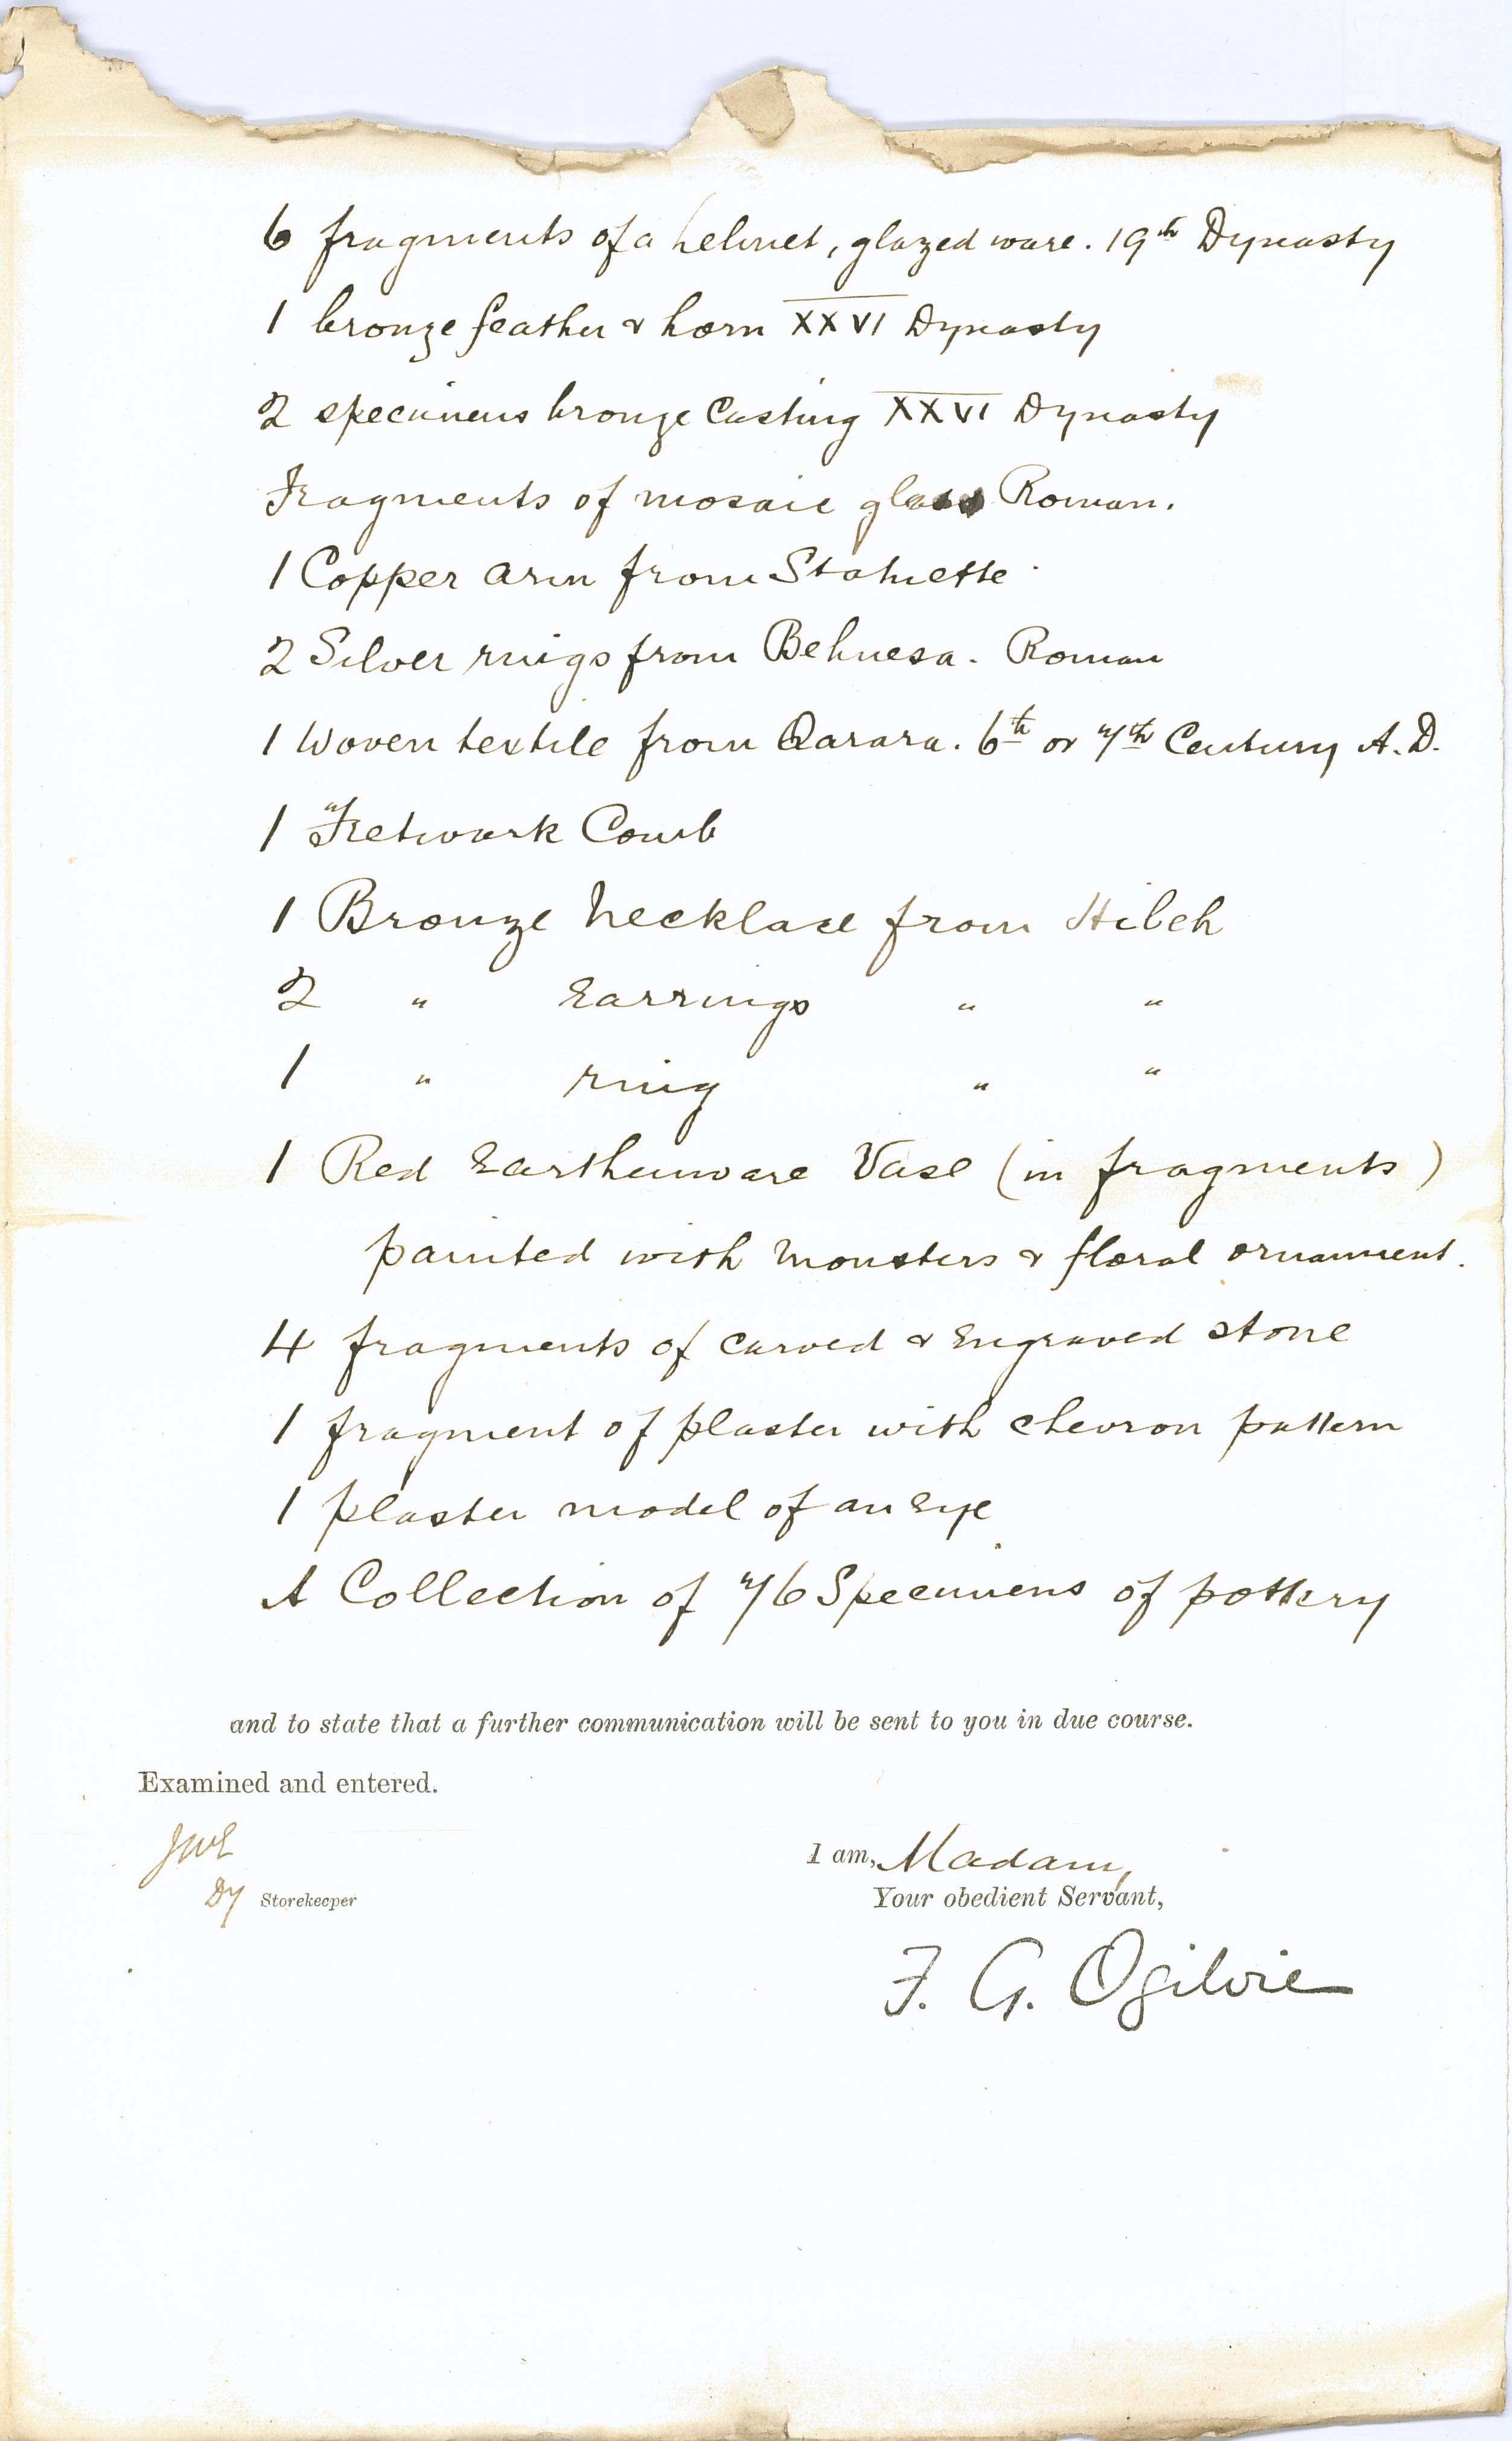 6 fragments of a helmet, glazed ware. 19th Dynasty
1 bronze feather & horn XXVI Dynasty
2 specimens bronze Casting XXVI Dynasty
Fragments of mosaic glass Roman.
1 Copper arm from Statuette
2 Silver rings from Behnesa. Roman
1 Woven textile from Qarara. 6th or 7th Century A.D.
1 Fretwork Comb
1 Bronze Necklace from Hibeh
2 " Earrings " "
1 " ring " "
1 Red Earthenware Vase (in fragments)
painted with monsters & floral ornament.
4 fragments of carved & Engraved stone
1 fragment of plaster with chevron pattern
1 plaster model of an Eye
A Collection of 76 Specimens of pottery
and to state that a further communication will be sent to you in due course.
Examined and entered.
I am, Madam,
Dy Storekeeper
Your obedient Servant,
F. G. Ogilvie